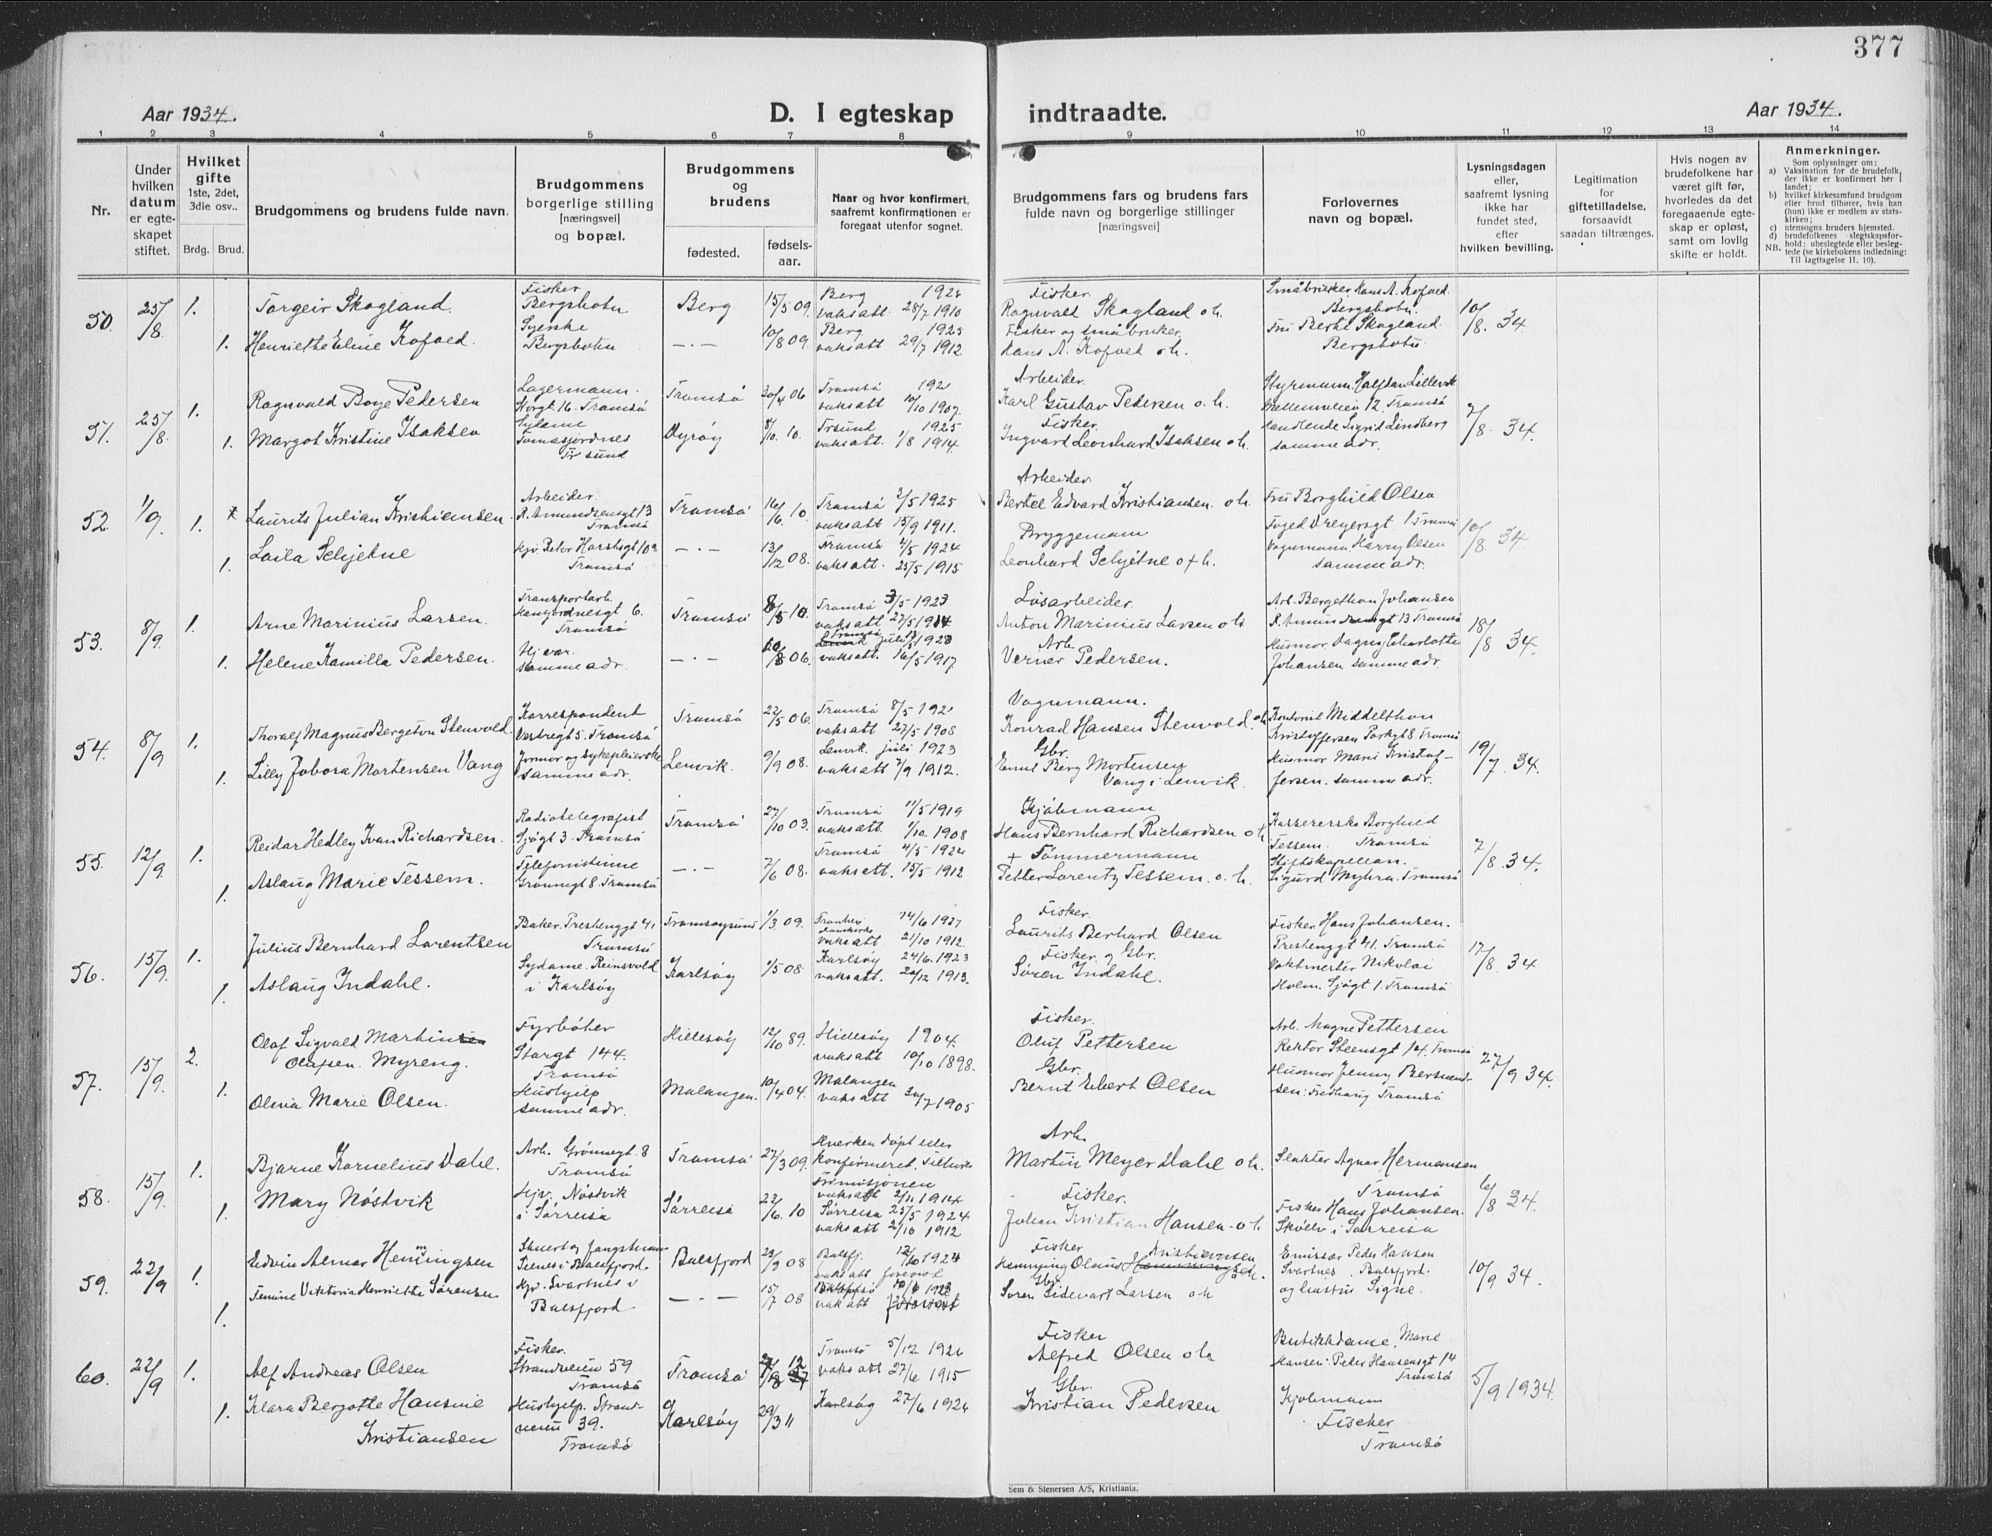 377
Aar 1934.
D. I egteskap indtraadte.
Aar 1934.
1 2 3 4 5 6 7 8 9 10 11 12 13 14
Nr.
Under hvilken datum er egteskapet stiftet.
Hvilket gifte
1ste, 2det, 3die osv..
Brdg. Brud.
Brudgommens og brudens fulde navn.
Brudgommens
borgerlige stilling
[næringsvei]
og bopæl.
Brudgommens
og
brudens
fødested.
fødsels-
aar.
Naar og hvor konfirmert,
saafremt konfirmationen er
foregaat utenfor sognet.
Brudgommens fars og brudens fars
fulde navn og borgerlige stillinger
[næringsvei]
Forlovernes
navn og bopæl.
Lysningsdagen
eller,
saafremt lysning
ikke har
fundet sted,
efter
hvilken bevilling.
Legitimation
for
giftetilladelse,
forsaavidt
saadan tiltrænges.
Hvis nogen av
brudefolkene har
været gift før,
hvorledes da det
foregaaende egte-
skap er opløst,
samt om lovlig
skifte er holdt.
Anmerkninger.
Som oplysninger om:
a) Vaksination for de brudefolk,
der ikke er konfirmert her i
landet;
b) hvilket kirkesamfund brudgom
eller brud tilhører, hvis han
(hun) ikke er medlem av stats-
kirken;
c) utensogns bruders hjemsted.
d) brudefolkenes slegtskapsfor-
hold: ubeslegtede eller besleg-
NB. tede (se kirkebokens indledning:
Til Iagttagelse II. 10).
50. 25/8 1. Torgeir Skogland. Fisker Bergsbotn Berg 15/5 09. Berg 1924 vaksatt 28/7 1910 Fisker. Ragnvald Skogland o.h. Småbruker Hans A. Kofoed Bergsbotn. 10/8. 34
1. Henriette Eline Kofoed. Syerske Bergsbotn — . — 10/8 09. Berg 1925 vaksatt 29/7 1912. Fisker og småbruker Hans A. Kofoed o.h. Fru Berte Skogland Bergsbotn
51. 25/8. 1. Ragnvald Boye Pedersen Lagermann. Storgt. 16. Tromsø Tromsø 30/4 06 Tromsø 1921 vaksatt 10/10 1907. Arbeider. Karl Gustav Pedersen o.h. Styrmann Halfdan Lillevik Mellemveien 12. Tromsø 7/8. 34.
1. Margot Kristine Isaksen Dyrøy 8/10. 10. 1925 vaksatt 1/8 1914. Fisker. Ingvard Leonhard Isaksen o.h. Sigrid Lindberg samme adr.
52. 1/9. 1. Laurits Julian Kristiansen. Arbeider R. Amundsensgt 13 Tromsø Tromsø 16/6. 10. Tromsø 2/5 1925 vaksatt 15/9 1911. Arbeider Bertel Edvard Kristiansen. o.h. Fru Borghild Olsen Foged Dreyersgt 1 Tromsø 10/8 34.
1. Laila Schjetne Hjv. Peter Hansensgt 10a Tromsø — . — 13/12 08. Tromsø 4/5 1924 vaksatt. 25/5 1915 Bryggemann Leonhard Schjetne o.f.h. Vognmann Harry Olsen samme adr.
53. 8/9. 1. Arne Marinius Larsen. Transportarb. 6. Tromsø Tromsø 8/5 10. Tromsø 3/5 1923 vaksatt 27/5 1914 Løsarbeider. Anton Marinius Larsen o.h. Arb. Bergethon Johansen R. Amundsensgt 13 Tromsø 18/8 34.
1. Helene Kamilla Pedersen. Hj. var. samme adr. — . — 20/8 06. Tromsø 1923 vaksatt. 16/5 1917. Arb. Verner Pedersen. Husmor Dagny Charlotte Johansen samme adr.
54. 8/9 1. Thoralf Magnus Bergeton Stenvold Korrespondent Vestregt 5. Tromsø Tromsø 22/5 06. Tromsø 8/5 1921 vaksatt 27/5 1908 Vognmann. Konrad Hansen Stenvold. o.h. Middelthon Kristoffersen Parkgt 8 Tromsø 19/7. 34.
1. Lilly Jobora Mortensen Vang Jormor og sykepleierske samme adr. Lenvik. 9/9 08. Lenvik. juli 1923 vaksatt 7/9 1912. Gbr. Emil Berg Mortensen Vang i Lenvik. Husmor Marie Kristoffersen. samme adr.
55. 12/9. 1. Reidar Hedley Ivan Richardsen. Radiotelegrafist Sjøgt 3. Tromsø Tromsø 27/10 03. Tromsø 11/5 1919 vaksatt. 1/10. 1908 Kjøbmann Hans Bernhard Richardsen o.h. Kassererske Borghild Tessem. Tromsø 7/8. 34.
1. Aslaug Marie Tessem. Telefonistinne Grønnegt 8. Tromsø — . — 7/6 08. Tromsø 4/5 1924 vaksatt. 15/5 1912 + Tømmermann Petter Lorentz Tessem. o.h. Stiftskapellan. Sigurd Myhra. Tromsø
56. 15/9. 1. Julius Bernhard Lorentsen Baker. Prestenggt 41. Tromsø Tromsøysund 1/3 09. 14/6 1927 vaksatt 21/10 1912. Fisker. Laurits Berhard Olsen Fisker Hans Johansen. Prestenggt 41. Tromsø 17/8. 34
1. Aslaug Indahl. Sydame. Reinsvold i Karlsøy Karlsøy 1/5 08 Karlsøy 24/6. 1923 vaksatt. 20/12 1913. Fisker og Gbr. Søren Indahl. Vaktmester Nikolai Holm. Sjøgt 1. Tromsø
57. 15/9. 2. Olaf Sigvald Martinsen Olafsen Myreng. Fyrbøter Storgt 144. Tromsø Hillesøy 12/10 89. Hillesøy 1904. vaksatt 10/10 1898. Fisker. Oluf Pettersen Arb. Magne Pettersen Rektor Steensgt 14. Tromsø 27/9 34.
1. Olina Marie Olsen. Hushjelp samme adr. Malangen. 10/4 04. Malangen vaksatt 30/7 1905 Gbr. Bernt Eibert Olsen Husmor Jenny Tromsø
58. 15/9. 1. Bjarne Kornelius Dahl. Arb. Grønnegt. 8 Tromsø Tromsø 27/3 09. Hverken døpt eller konfirmeret. vaksatt 2/11 1914 Arb. Martin Meyer Dahl o.h. Slakter Agnar Hermansen Tromsø 6/8 34.
1. Mary Nøstvik Hjv. Nøstvik i Sørreisa Sørreisa 23/6. 10 Sørreisa 25/5 1924 vaksatt 2/10 1912 Fisker. Johan Kristian Hansen o.h. Fisker Hans Johansen. Skøelv i Sørreisa
59. 22/9 1. Edvin Almar Hemmingsen Balsfjord 23/9 08 Balsfj. 12/10 1924 vaksatt forevist Fisker Hemming Olaus Kristiansen o.h. Emissær Peder Hansen Svartnes. Balsfjord. 10/9 34.
1. Femine Viktoria Henriette Sørensen Hjv. Svartnes i Balsfjord — . — 15/7 08 1923 vaksatt forevist Gbr. Søren Sidevart Larsen o.h og hustru Signe.
60. 22/9 1. Alf Andreas Olsen Fisker. Strandveien 59 Tromsø Tromsø Tromsø 5/12 1926 vaksatt 27/6 1915 Fisker Alfred Olsen o.h. Butikkdame. Marie Hansen: Peter Hansensgt 14 Tromsø 5/9 1934.
1. Klara Bergotte Hansine Kristiansen Hushjelp. Strandveien 39. Tromsø Karlsøy 29/3 11 Karlsøy 27/6 1926 Gbr. Kristian Pedersen Kjøbmann Fischer Tromsø
Sem & Stenersen A/S, Kristiania.